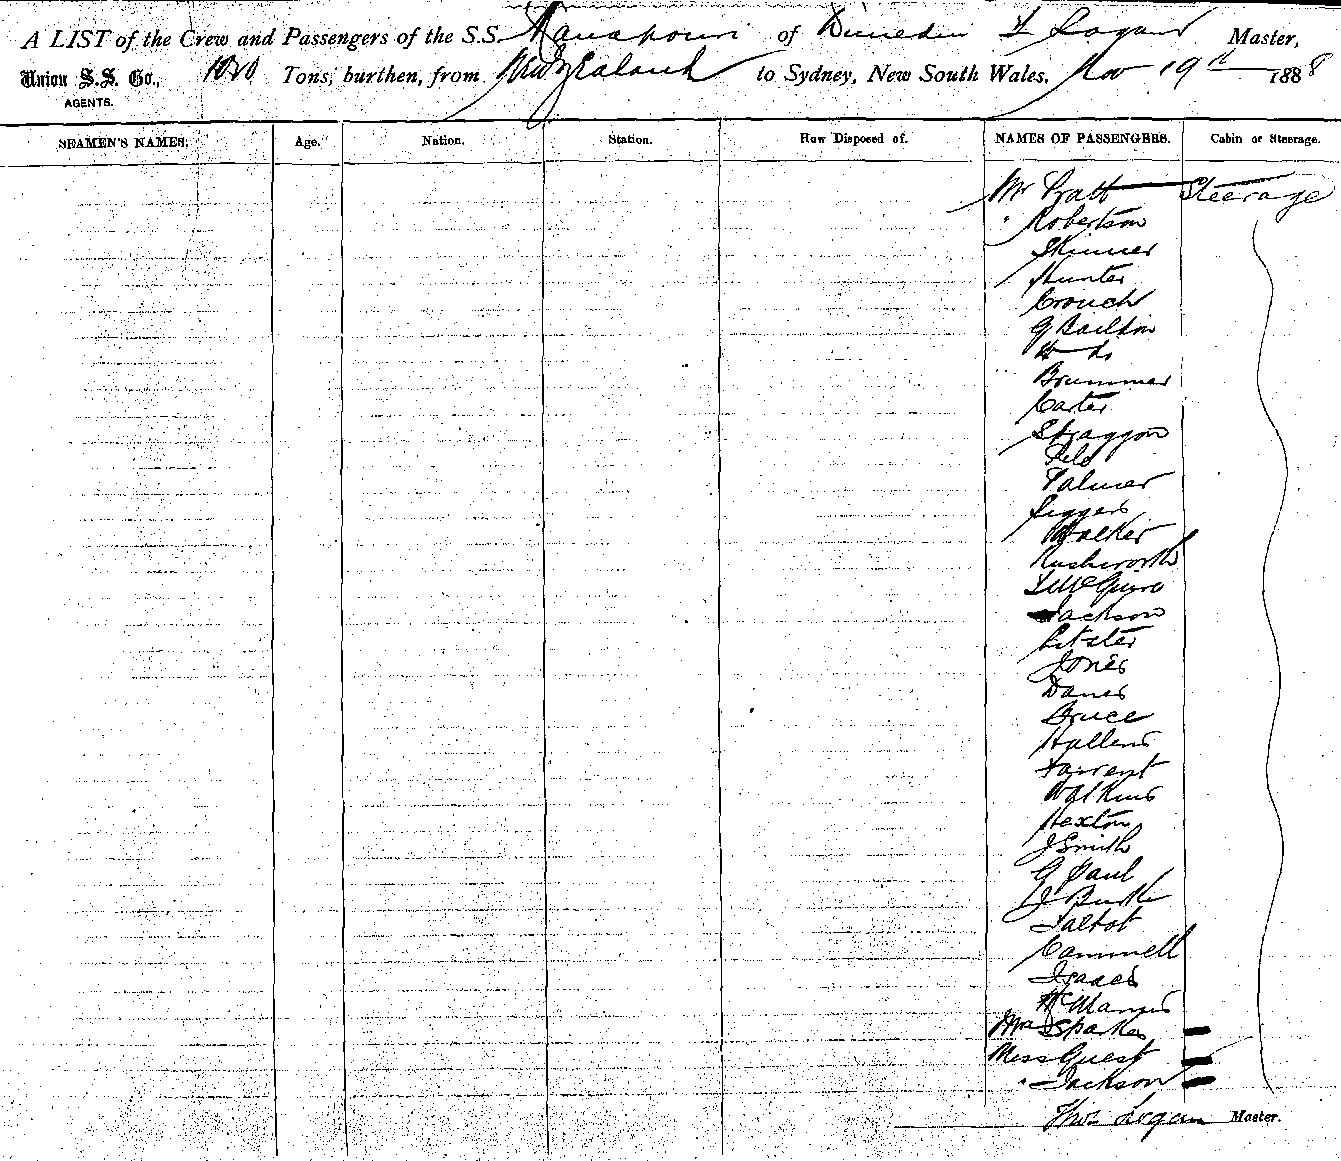 A LIST of the Crew and Passengers of the S.S. Manapouri of Dunedin T Logan Master,
Union S.S. Co., 1020 Tons, burthen, from New Zealand to Sydney, New South Wales, Nov 19th 1888
AGENTS.
SEAMEN'S NAMES. Age. Nation. Station. How Disposed of. NAMES OF PASSENGERS. Cabin or Steerage.
Mr Pratt Steerage
" Robertson
Skinner
Hunter
Crouch
G Baildon
W do
Brummer
Carter
Straggon
Palmer
Siggers
Walker
Rushworth
McGuire
Jackson
Litster
Jones
Danes
Bruce
Hallens
Tarrent
Watkins
Hexton
J Smith
G Paul
J Burke
Talbot
Cammell
Isaacs
McManus
Mrs Sparkes
Miss Guest
" Jackson
Thos Logan Master.